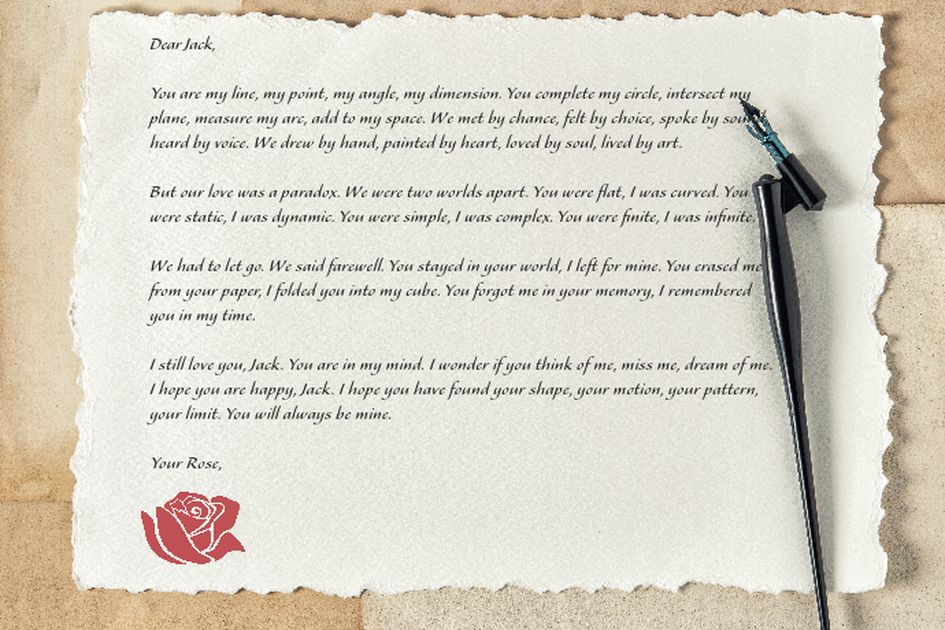 Dear Jack,
You are my line, my point, my angle, my dimension. You complete my circle, intersect my
plane, measure my arc, add to my space. We met by chance, felt by choice, spoke by
heard by voice. We drew by hand, painted by heart, loved by soul, lived by art.
But our love was a paradox. We were two worlds apart. You were flat, I was curved. You
were static, I was dynamic. You were simple, I was complex. You were finite, I was infinite.
We had to let go. We said farewell. You stayed in your world, I left for mine. You erased me
from your paper, I folded you into my cube. You forgot me in your memory, I remembered
you in my time.
I still love you, Jack. You are in my mind. I wonder if you think of me, miss me, dream of me.
I hope you are happy, Jack. I hope you have found your shape, your motion, your pattern,
your limit. You will always be mine.
Your Rose,